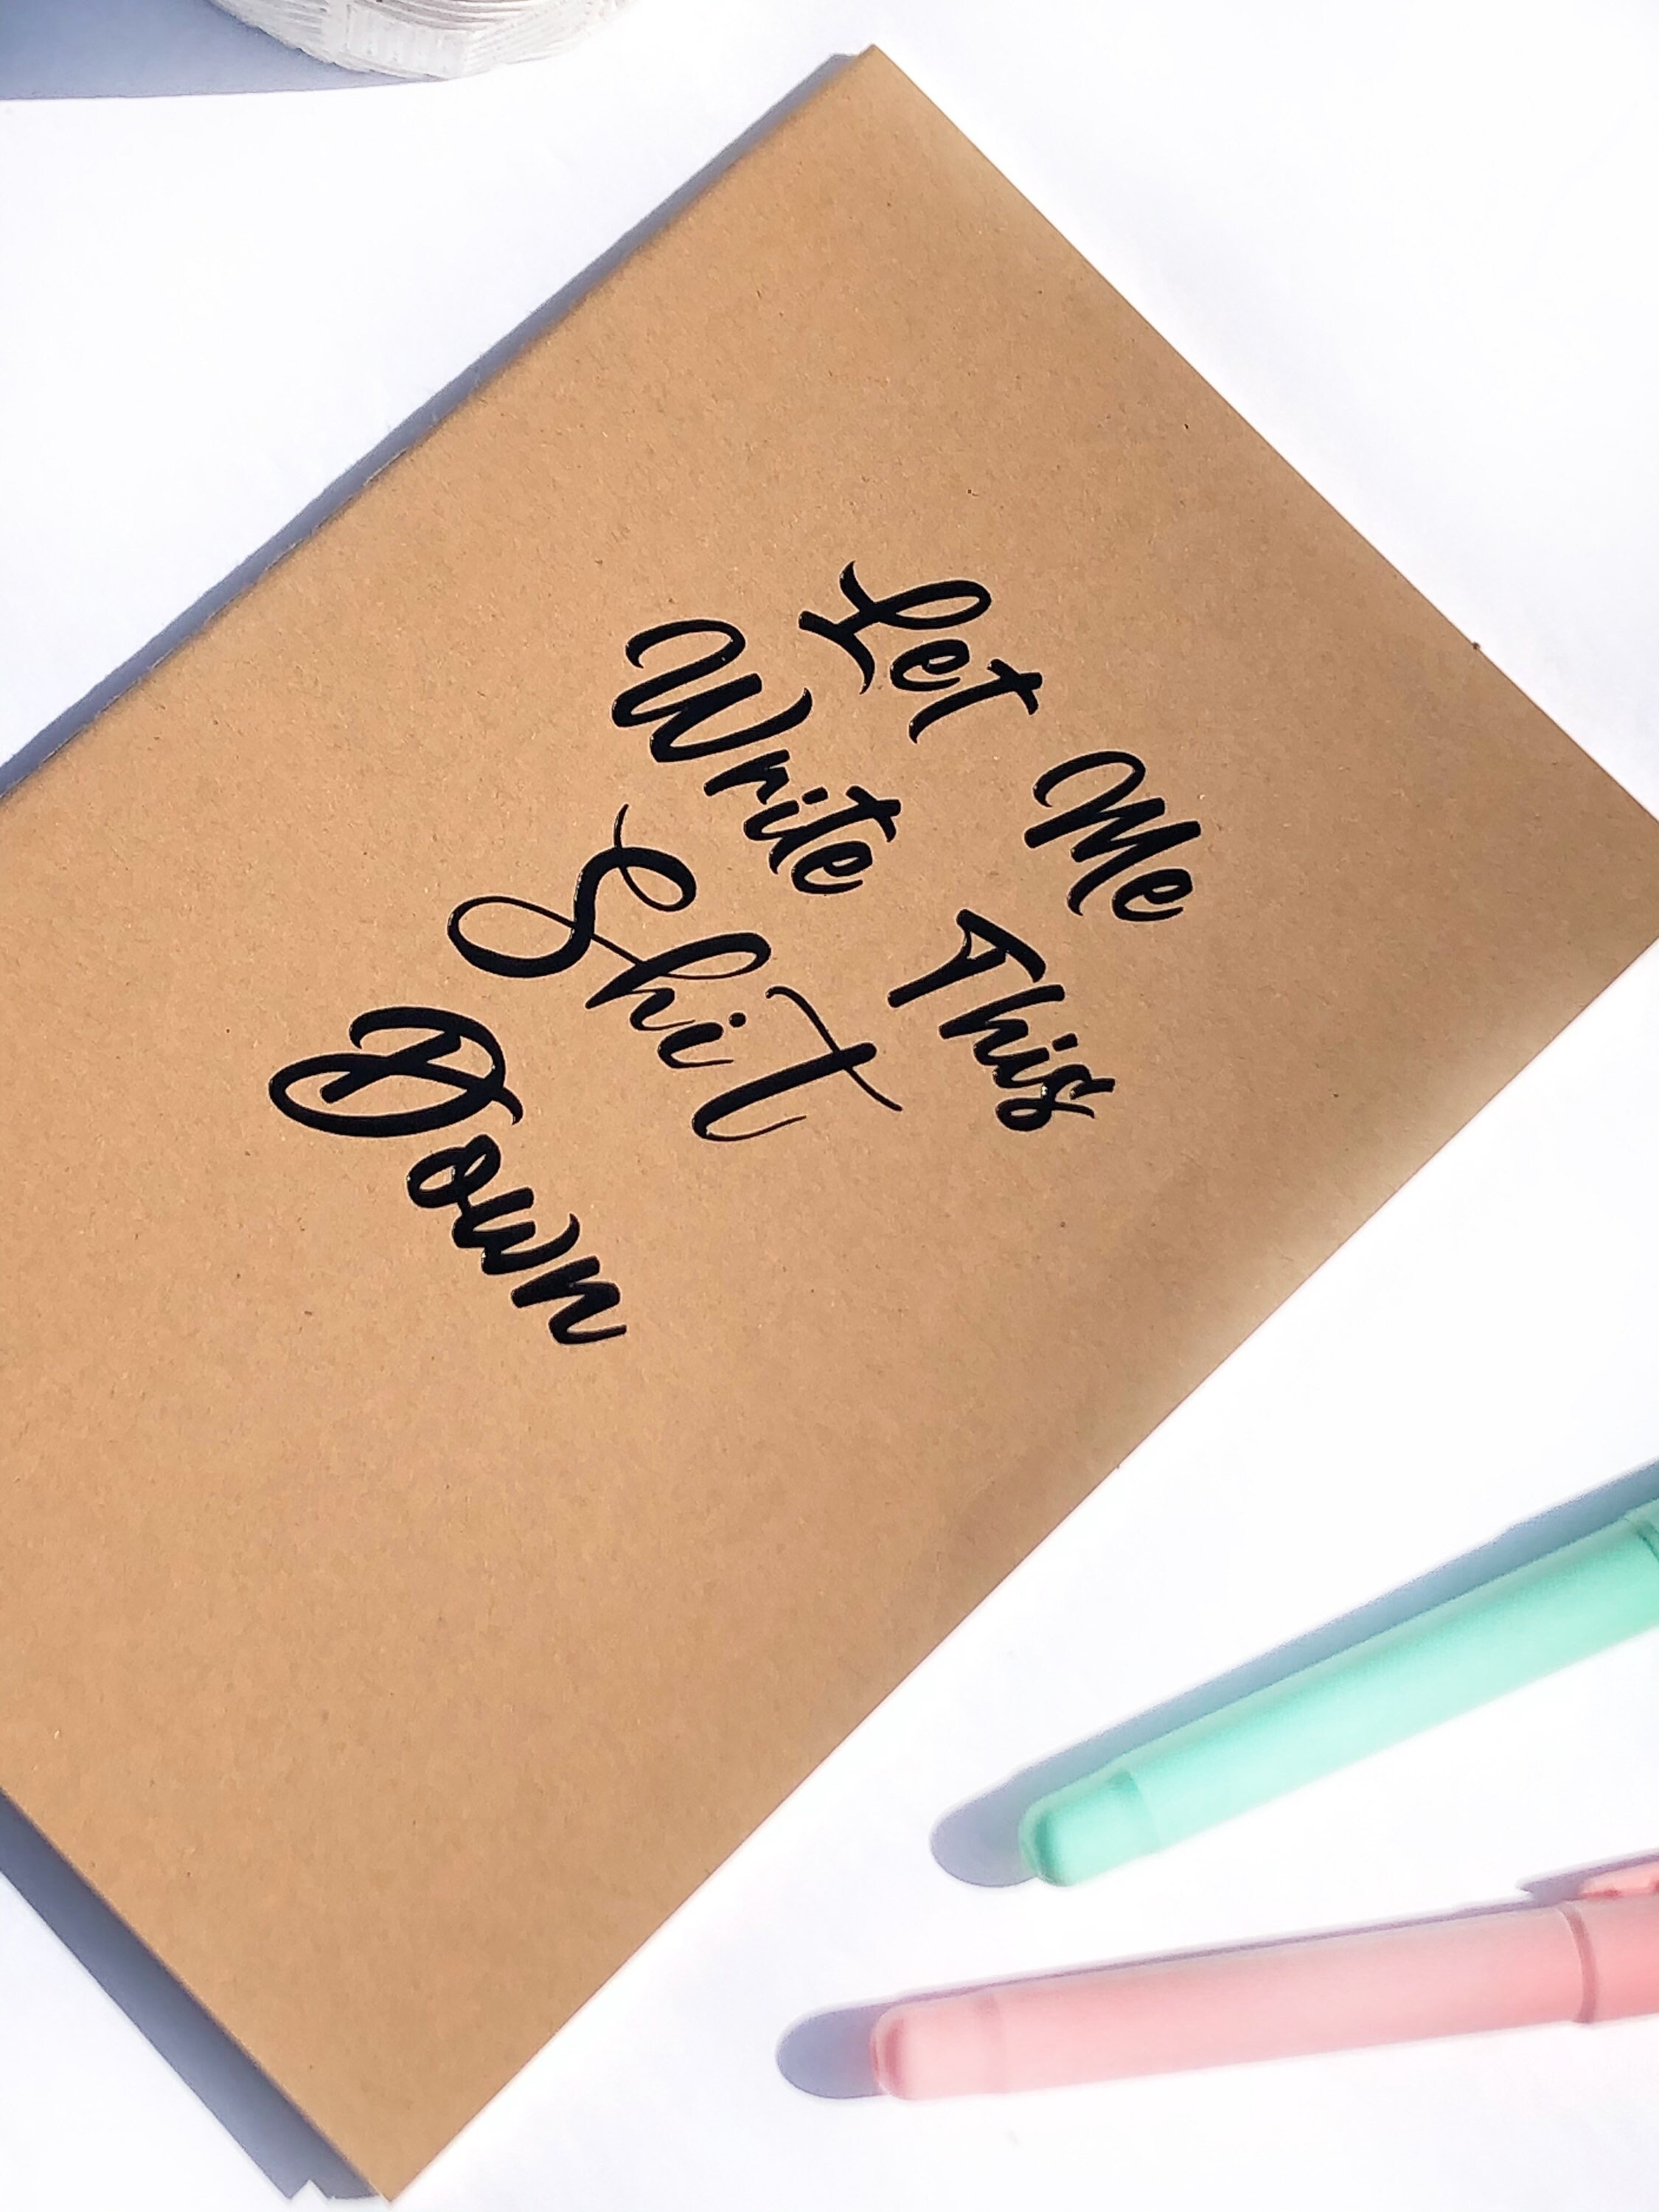 Let Me
Write This
Shit
Down